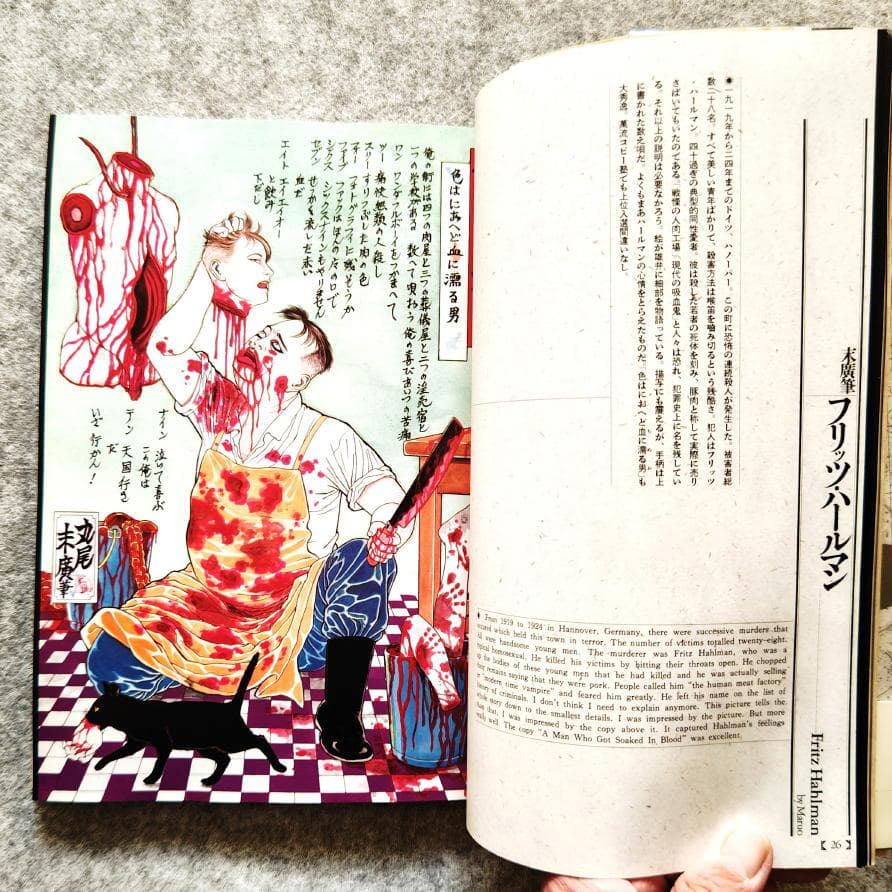 色はにあへど血に濡る男
俺の町には四つの肉屋と三つの葬儀屋と二つの淫売宿と
一つの学校がある 数へて唄おう俺の喜びあいつの苦痛
ワン ワンダフルボーイをつかまへて
ツー 痛快無類の人殺し
スリー すりつぶした肉の色
フォー フォトグラフィに残そうか
ファイブ ファックはほんの尻の口で
シックス シックスナインもやりません
セブン せっかく流した赤い
血だ
エイト エイエイオー
と飲み
下だし
ナイン 泣いて喜ぶ
この俺は
テン 天国行き
だ
いざ行かん！
丸尾
末廣筆
末廣筆 フリッツ・ハールマン
●一九一九年から二四年までのドイツ、ハノーバー。この町に恐怖の連続殺人が発生した。被害者総
数二十八名。すべて美しい青年ばかりで、殺害方法は喉笛を嚙み切るという残酷さ。犯人はフリッツ
・ハールマン。四十過ぎの典型的同性愛者。彼は殺した若者の死体を刻み、豚肉と称して実際に売り
さばいてもいたのである。「戦慄の人肉工場」「現代の吸血鬼」と人々は恐れ、犯罪史上に名を残してい
る。それ以上の説明は必要なかろう。絵が雄弁に細部を物語っている。描写にも震えるが、手柄は上
に書かれた数え唄だ。よくもまあハールマンの心情をとらえたものだ。「色はにおへど血に濡る男」も
大秀逸。萬流コピー塾でも上位入選間違いなし。
◆ From 1919 to 1924 in Hannover, Germany, there were successive murders that
occured which held this town in terror. The number of victims totalled twenty-eight.
All were handsome young men. The murderer was Fritz Hahlman, who was a
typical homosexual. He killed his victims by bitting their throats open. He chopped
up the bodies of these young men that he had killed and he was actually selling
the remains saying that they were pork. People called him "the human meat factory"
or "modern time vampire" and feared him greatly. He left his name on the list of
history of criminals. I don't think I need to explain anymore. This picture tells the
whole story down to the smallest details. I was impressed by the picture. But more
than that, I was impressed by the copy above it. It captured Hahlman's feelings
really well. The copy "A Man Who Got Soaked In Blood" was excellent.
Fritz Hahlman
by Maruo
【26】